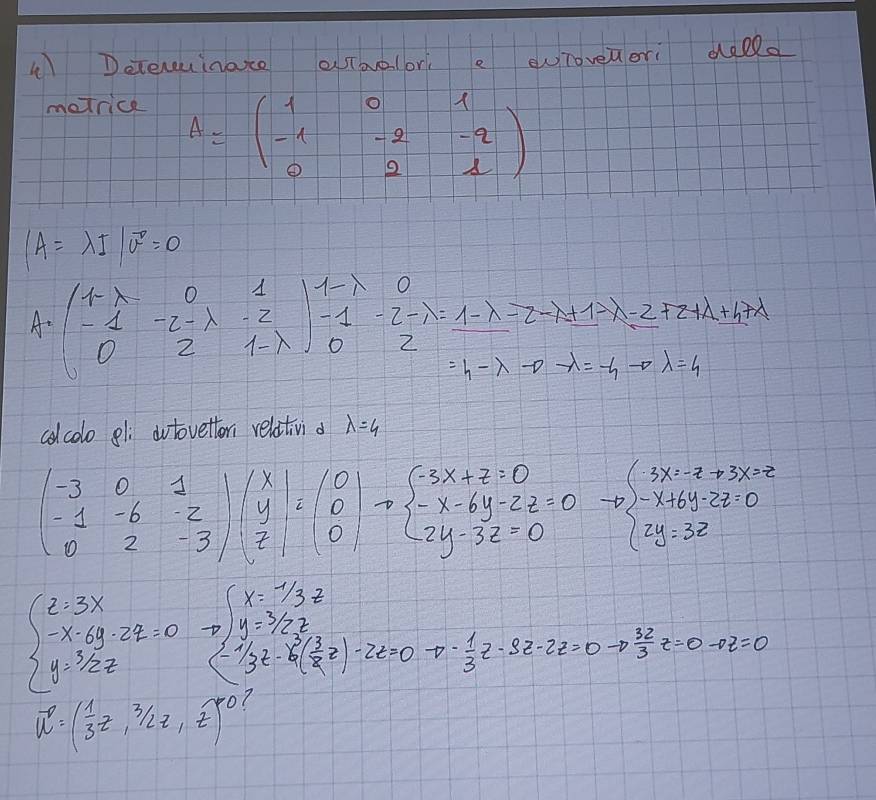 4) Determinare autovalori e autovettori della
matrice
A= ( 1 0 1
-1 -2 -2
0 2 1 )
|A = λI|v⃗=0
A= ( 1-λ 0 1 ) 1-λ 0
-1 -2-λ -2 -1 -2-λ = 1-λ-2-λ+1-λ-2+2+λ+4+λ
0 2 1-λ 0 2
=4-λ → -λ=-4 → λ=4
calcolo gli autovettori relativi a λ=4
( -3 0 1 ) ( x ) = ( 0 ) → { -3x+z=0 → { -3x=-z→3x=z
-1 -6 -2 y 0 -x-6y-2z=0 -x+6y-2z=0
0 2 -3 z 0 2y-3z=0 2y=3z
{ z=3x → { x=1/3z
-x-6y-2z=0 y=3/2z
y=3/2z -1/3z-6(3/2z)-2z=0 → -1/3z-9z-2z=0 → 32/3z=0 → z=0
u⃗=(1/3z, 3/2z, z) →0?